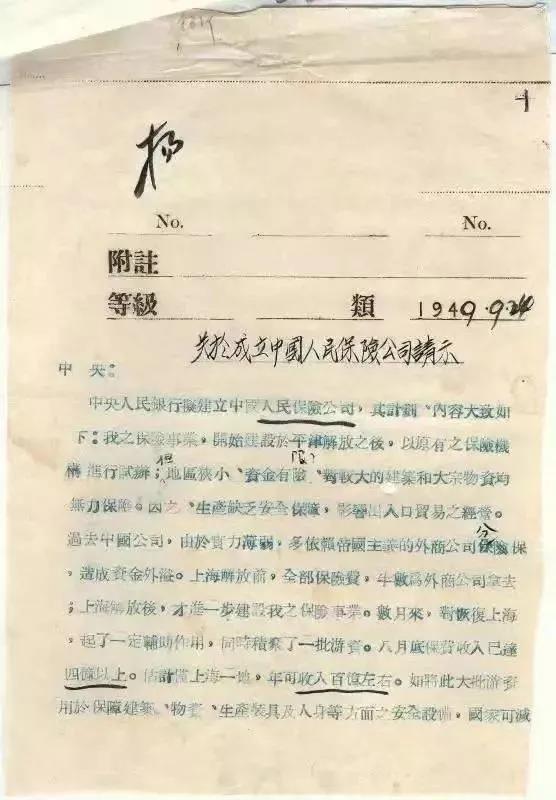 No. No.
附註
等級 類 1949.9.24
关於成立中國人民保險公司請示
中央：
中央人民銀行擬建立中國人民保險公司，其計劃、內容大致如
下：我之保險事業，開始建設於平津解放之後，以原有之保險機
構進行試辦；但地區狹小、資金有險限？、對較大的建築和大宗物資均
無力保障。因之、生產缺乏安全保障，影響出入口貿易之經營。
過去中國公司，由於實力薄弱，多依賴帝國主義的外商公司分保
，造成資金外溢。上海解放前，全部保險費，半數爲外商公司拿去
；上海解放後，才進一步建設我之保險事業。數月來，對恢復上海
，起了一定輔助作用，同時積聚了一批游資。八月底保費收入已達
四億以上。估計僅上海一地，年可收入百億左右。如將此大批游資
用於保障建築、物資、生產裝具及人身等方面之安全設備，國家可減